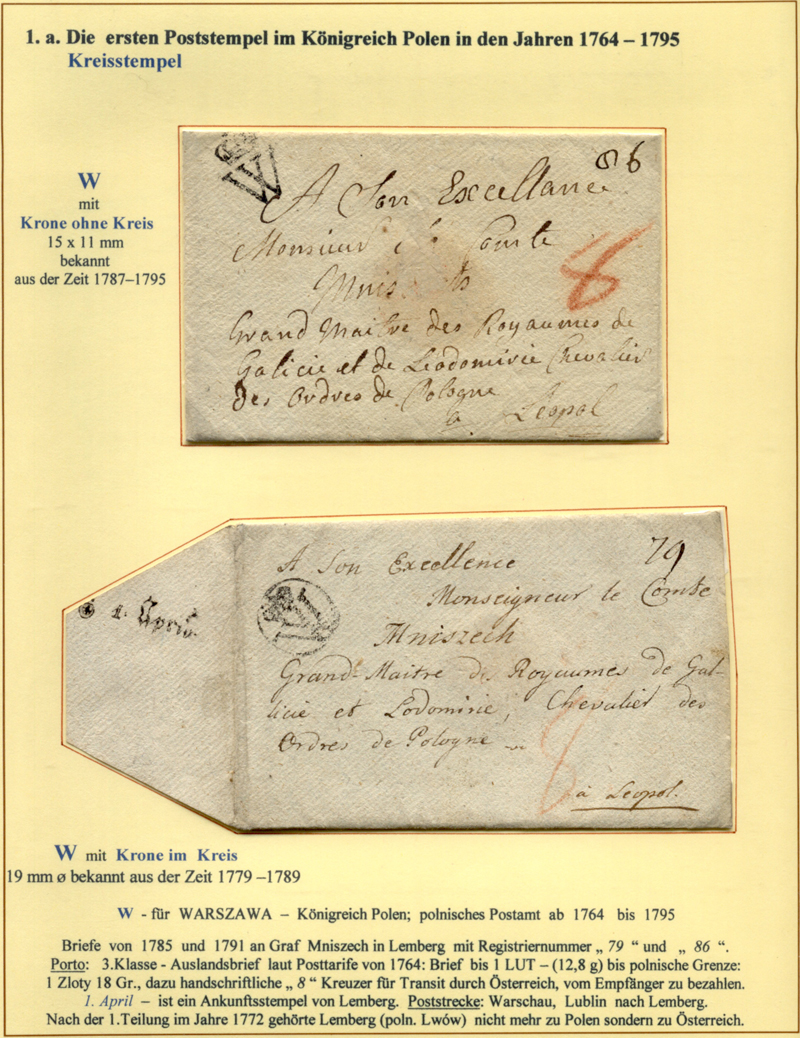 1. a. Die ersten Poststempel im Königreich Polen in den Jahren 1764 – 1795
Kreisstempel
W
mit
Krone ohne Kreis
15 x 11 mm
bekannt
aus der Zeit 1787–1795
W
86
A Son Excellance
Monsieur le Comte
8
Grand Maitre des Royaumes de
Galicie et de Leodomirie Chevalier
des Ordres de Pologne
à Léopol
A Son Excellence
79
Monseigneur le Comte
W
1. April
Mniszech
Grand-Maitre des Royaumes de Gal-
licie et Lodomirie, Chevalier des
Ordres de Pologne
8
à Leopol.
W mit Krone im Kreis
19 mm ø bekannt aus der Zeit 1779 –1789
W - für WARSZAWA – Königreich Polen; polnisches Postamt ab 1764 bis 1795
Briefe von 1785 und 1791 an Graf Mniszech in Lemberg mit Registriernummer „ 79 “ und „ 86 “.
Porto: 3.Klasse - Auslandsbrief laut Posttarife von 1764: Brief bis 1 LUT – (12,8 g) bis polnische Grenze:
1 Zloty 18 Gr., dazu handschriftliche „ 8 “ Kreuzer für Transit durch Österreich, vom Empfänger zu bezahlen.
1. April – ist ein Ankunftsstempel von Lemberg. Poststrecke: Warschau, Lublin nach Lemberg.
Nach der 1.Teilung im Jahre 1772 gehörte Lemberg (poln. Lwów) nicht mehr zu Polen sondern zu Österreich.